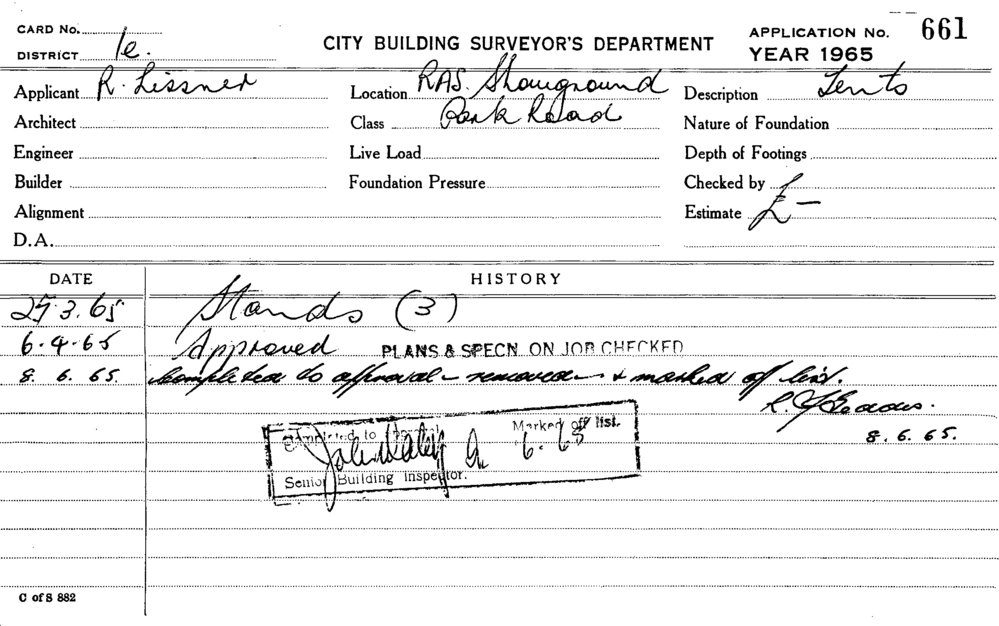 CARD No.
DISTRICT 1e.
CITY BUILDING SURVEYOR'S DEPARTMENT
APPLICATION No. 661
YEAR 1965
Applicant R. Lissner
Location RAS. Showground
Description Tents
Architect
Class Park Road
Nature of Foundation
Engineer
Live Load
Depth of Footings
Builder
Foundation Pressure
Checked by
Alignment
Estimate £ —
D.A.
DATE HISTORY
3.65 Stands (3)
6.4.65 Approved PLANS & SPECN. ON JOB CHECKED
8. 6. 65. Completed to approval - removed - & marked of list.
R.
8. 6. 65.
Completed to approval Marked off list.
6. 65
Senior Building Inspector.
C of S 882